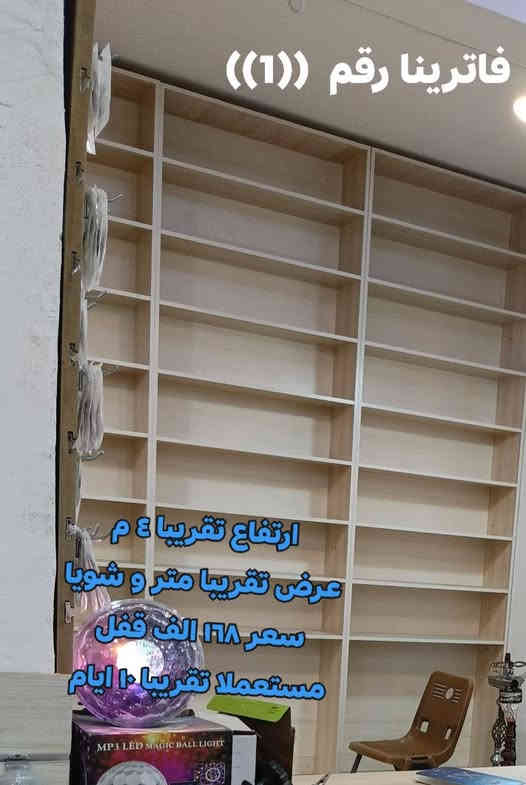 فاترينا رقم ((1))
ارتفاع تقريبا ٤ م
عرض تقريبا متر و شويا
سعر ١٦٨ الف قفل
مستعملا تقريبا ١٠ ايام
MP3 LED MAGIC BALL LIGHT